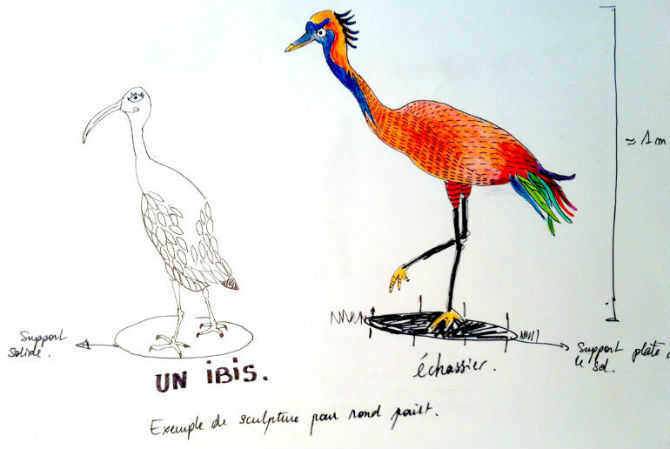 ≈ 1 m
Support
solide.
UN iBiS.
échassier.
Support plate
le sol.
Exemple de sculpture pour rond point.